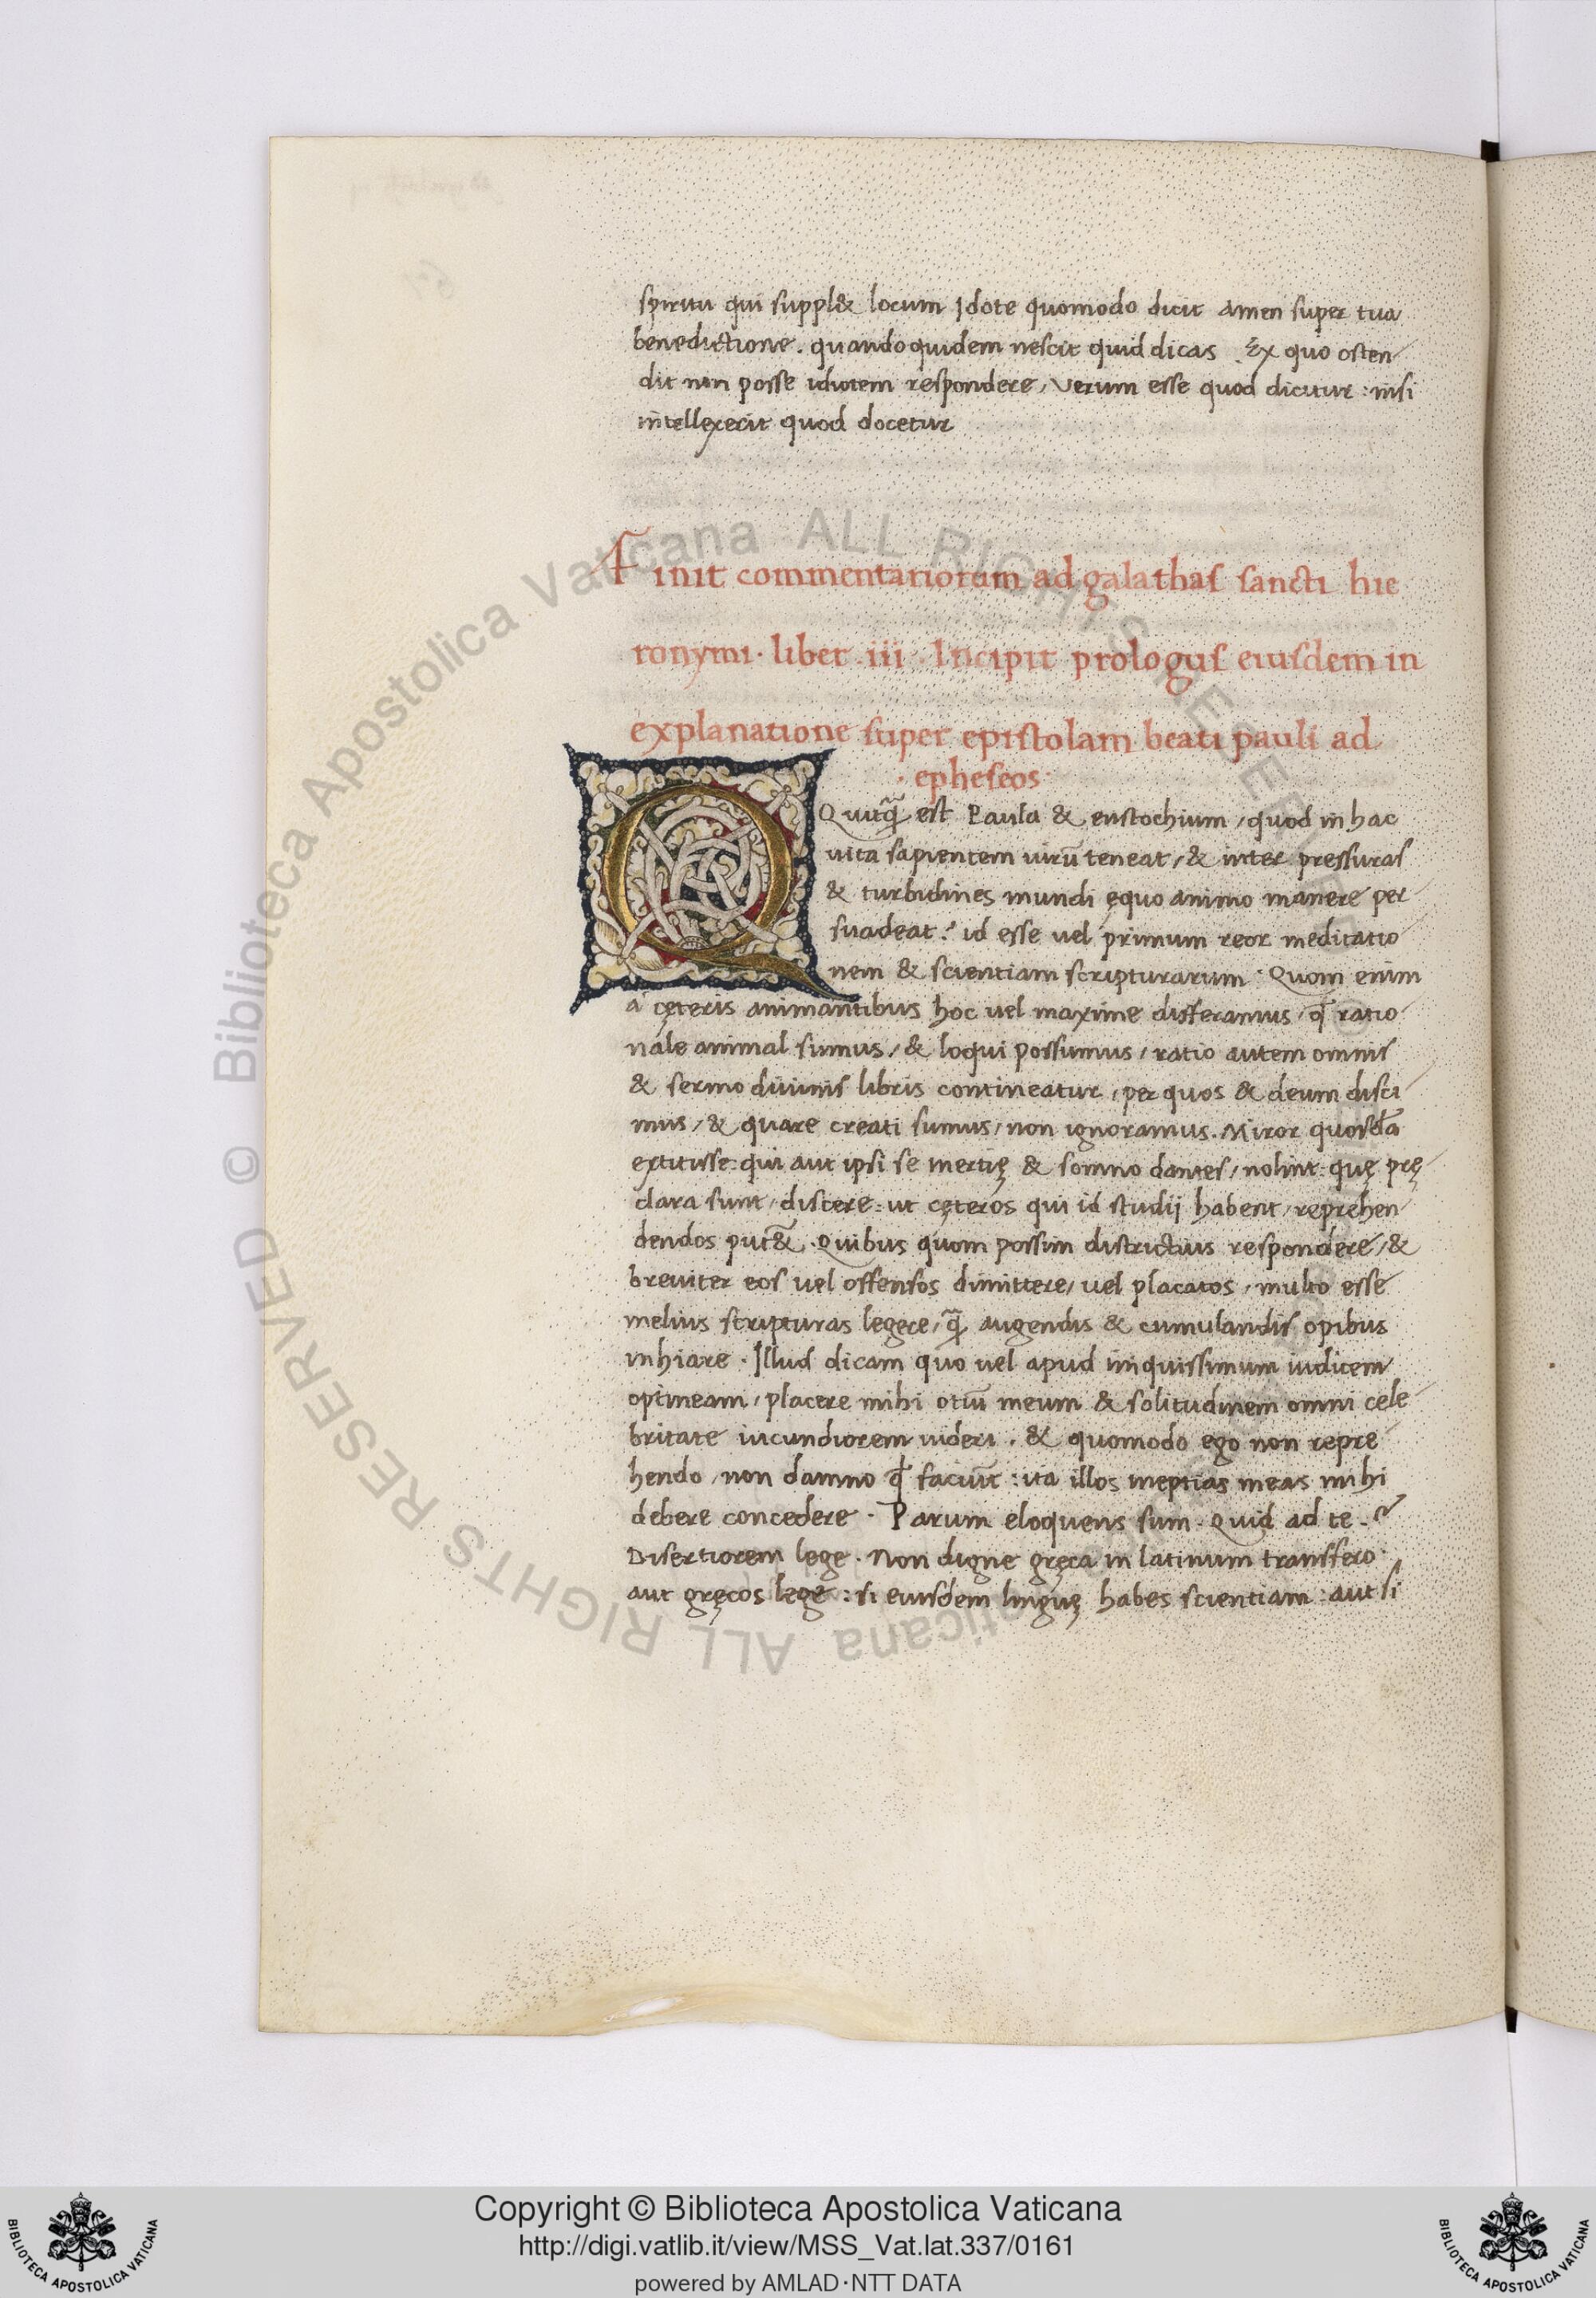 spiritu qui suppl& locum Idote quomodo dicit amen super tua
benedictione. quandoquidem nescit quid dicas. Ex quo osten-
dit non posse idiotem respondere, verum esse quod dicitur: nisi
intellexerit quod docetur
Finit commentariorum ad galathas sancti hie
ronymi. liber iii. Incipit prologus eiusdem in
explanatione super epistolam beati pauli ad
. epheseos.
Quicq̃ est Paula & eustochium, quod in hac
uita sapientem uirū teneat, & inter pressuras
& turbidines mundi ęquo animo manere per-
suadeat? id esse uel primum reor meditatio
nem & scientiam scripturarum. Quom enim
a cęteris animantibus hoc uel maxime differamus, q̄ ratio
nale animal sumus, & loqui possumus, ratio autem omnis
& sermo diuinis libris contineatur, per quos & deum disci
mus, & quare creati sumus, non ignoramus. Miror quosdā
extitisse: qui aut ipsi se inertię & somno dantes, nolint: quę prę-
clara sunt, discere: ut cęteros qui id studij habent, reprehen
dendos put&̄. Quibus quom possim districtius respondere, &
breuiter eos uel offensos dimittere, uel placatos, multo esse
melius scripturas legere, q̃ augendis & cumulandis opibus
inhiare. Illud dicam quo uel apud iniquissimum iudicem
optineam, placere mihi otiū meum & solitudinem omni cele-
britate iucundiorem uideri. & quomodo ego non repre
hendo, non damno q̄ faciūt: ita illos ineptias meas mihi
debere concedere. Parum eloquens sum. Quid ad te.?
Disertiorem lege. Non digne gręca in latinum transfero.
aut gręcos lege: si eiusdem linguę habes scientiam: aut si
Copyright © Biblioteca Apostolica Vaticana
http://digi.vatlib.it/view/MSS_Vat.lat.337/0161
powered by AMLAD·NTT DATA
BIBLIOTECA APOSTOLICA VATICANA
BIBLIOTECA APOSTOLICA VATICANA
© Biblioteca Apostolica Vaticana ALL RIGHTS RESERVED
© Biblioteca Apostolica Vaticana ALL RIGHTS RESERVED